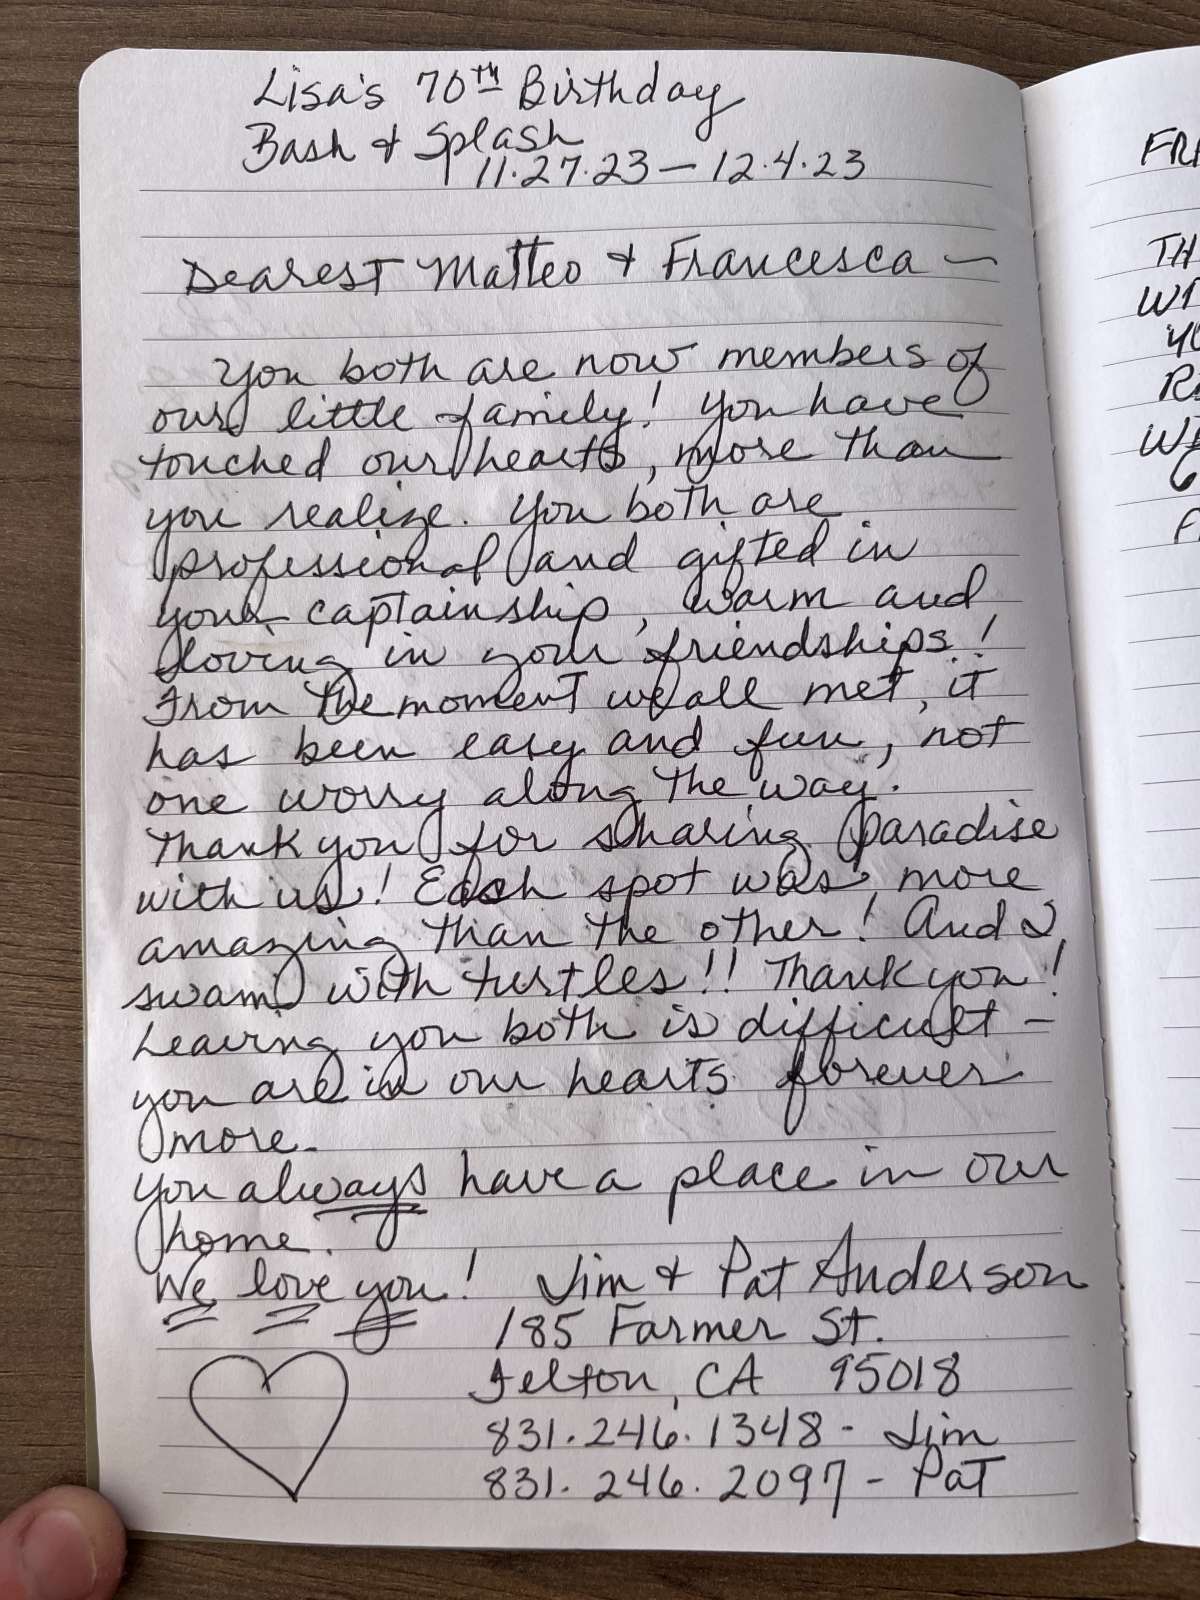 Lisa's 70th Birthday
Bash & Splash
11.27.23 – 12.4.23
Dearest Matteo & Francesca –
You both are now members of
our little family! You have
touched our hearts, more than
you realize. You both are
professional and gifted in
your captainship, warm and
loving in your friendships!
From the moment we all met, it
has been easy and fun, not
one worry along the way.
Thank you for sharing paradise
with us! Each spot was more
amazing than the other! And I
swam with turtles!! Thank you!
Leaving you both is difficult –
you are in our hearts forever
more.
You always have a place in our
home.
We love you! Jim & Pat Anderson
185 Farmer St.
Felton, CA 95018
831.246.1348 - Jim
831.246.2097 - Pat
FRI
TH
WI
YO
RE
WE